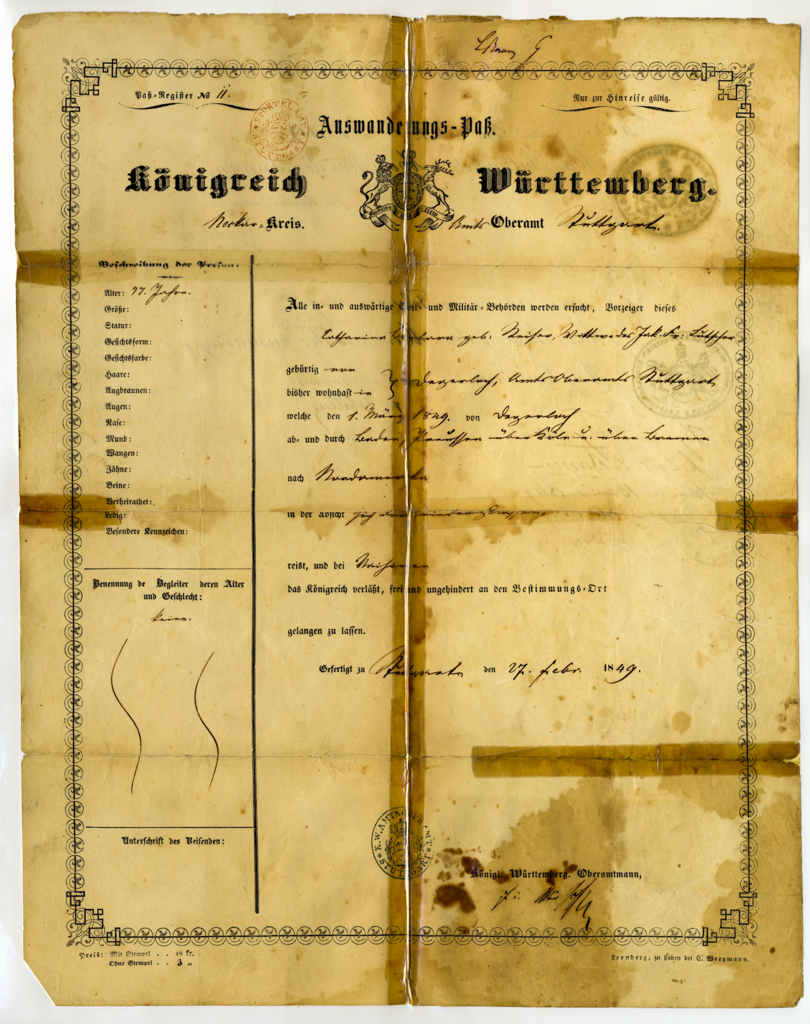 Paß-Register № 11.
Nur zur Hinreise gültig.
Auswanderungs-Paß.
Königreich Württemberg.
Neckar-Kreis.
Amts Oberamt Stuttgart.
Beschreibung der Person.
Alter: 77 Jahre.
Größe:
Statur:
Gesichtsform:
Gesichtsfarbe:
Haare:
Augbraunen:
Augen:
Nase:
Mund:
Wangen:
Zähne:
Beine:
Verheirathet:
Ledig:
Besondere Kennzeichen:
Benennung de Begleiter deren Alter
und Geschlecht:
keine.
Unterschrift des Reisenden:
Alle in- und auswärtige Civil- und Militär-Behörden werden ersucht, Vorzeiger dieses
Catharina geb. Wittwe des Jak. Fr.
gebürtig von
bisher wohnhaft in
Degerloch, Amts Oberamts Stuttgart
welche den 1. März 1849. von Degerloch
ab- und durch Baden, Preussen über Köln u. über Bremen
nach Nordamerika
in der Absicht sich
reist, und bei
das Königreich verläßt, frei und ungehindert an den Bestimmungs-Ort
gelangen zu lassen.
Gefertigt zu Stuttgart den 27. Febr. 1849.
K. W. AMTSOBERAMT STUTTGART
Königl. Württemberg. Oberamtmann,
Preis: Mit Stempel . . 48 kr.
Ohne Stempel . . 3 „
Leonberg, zu haben bei C. Weegmann.